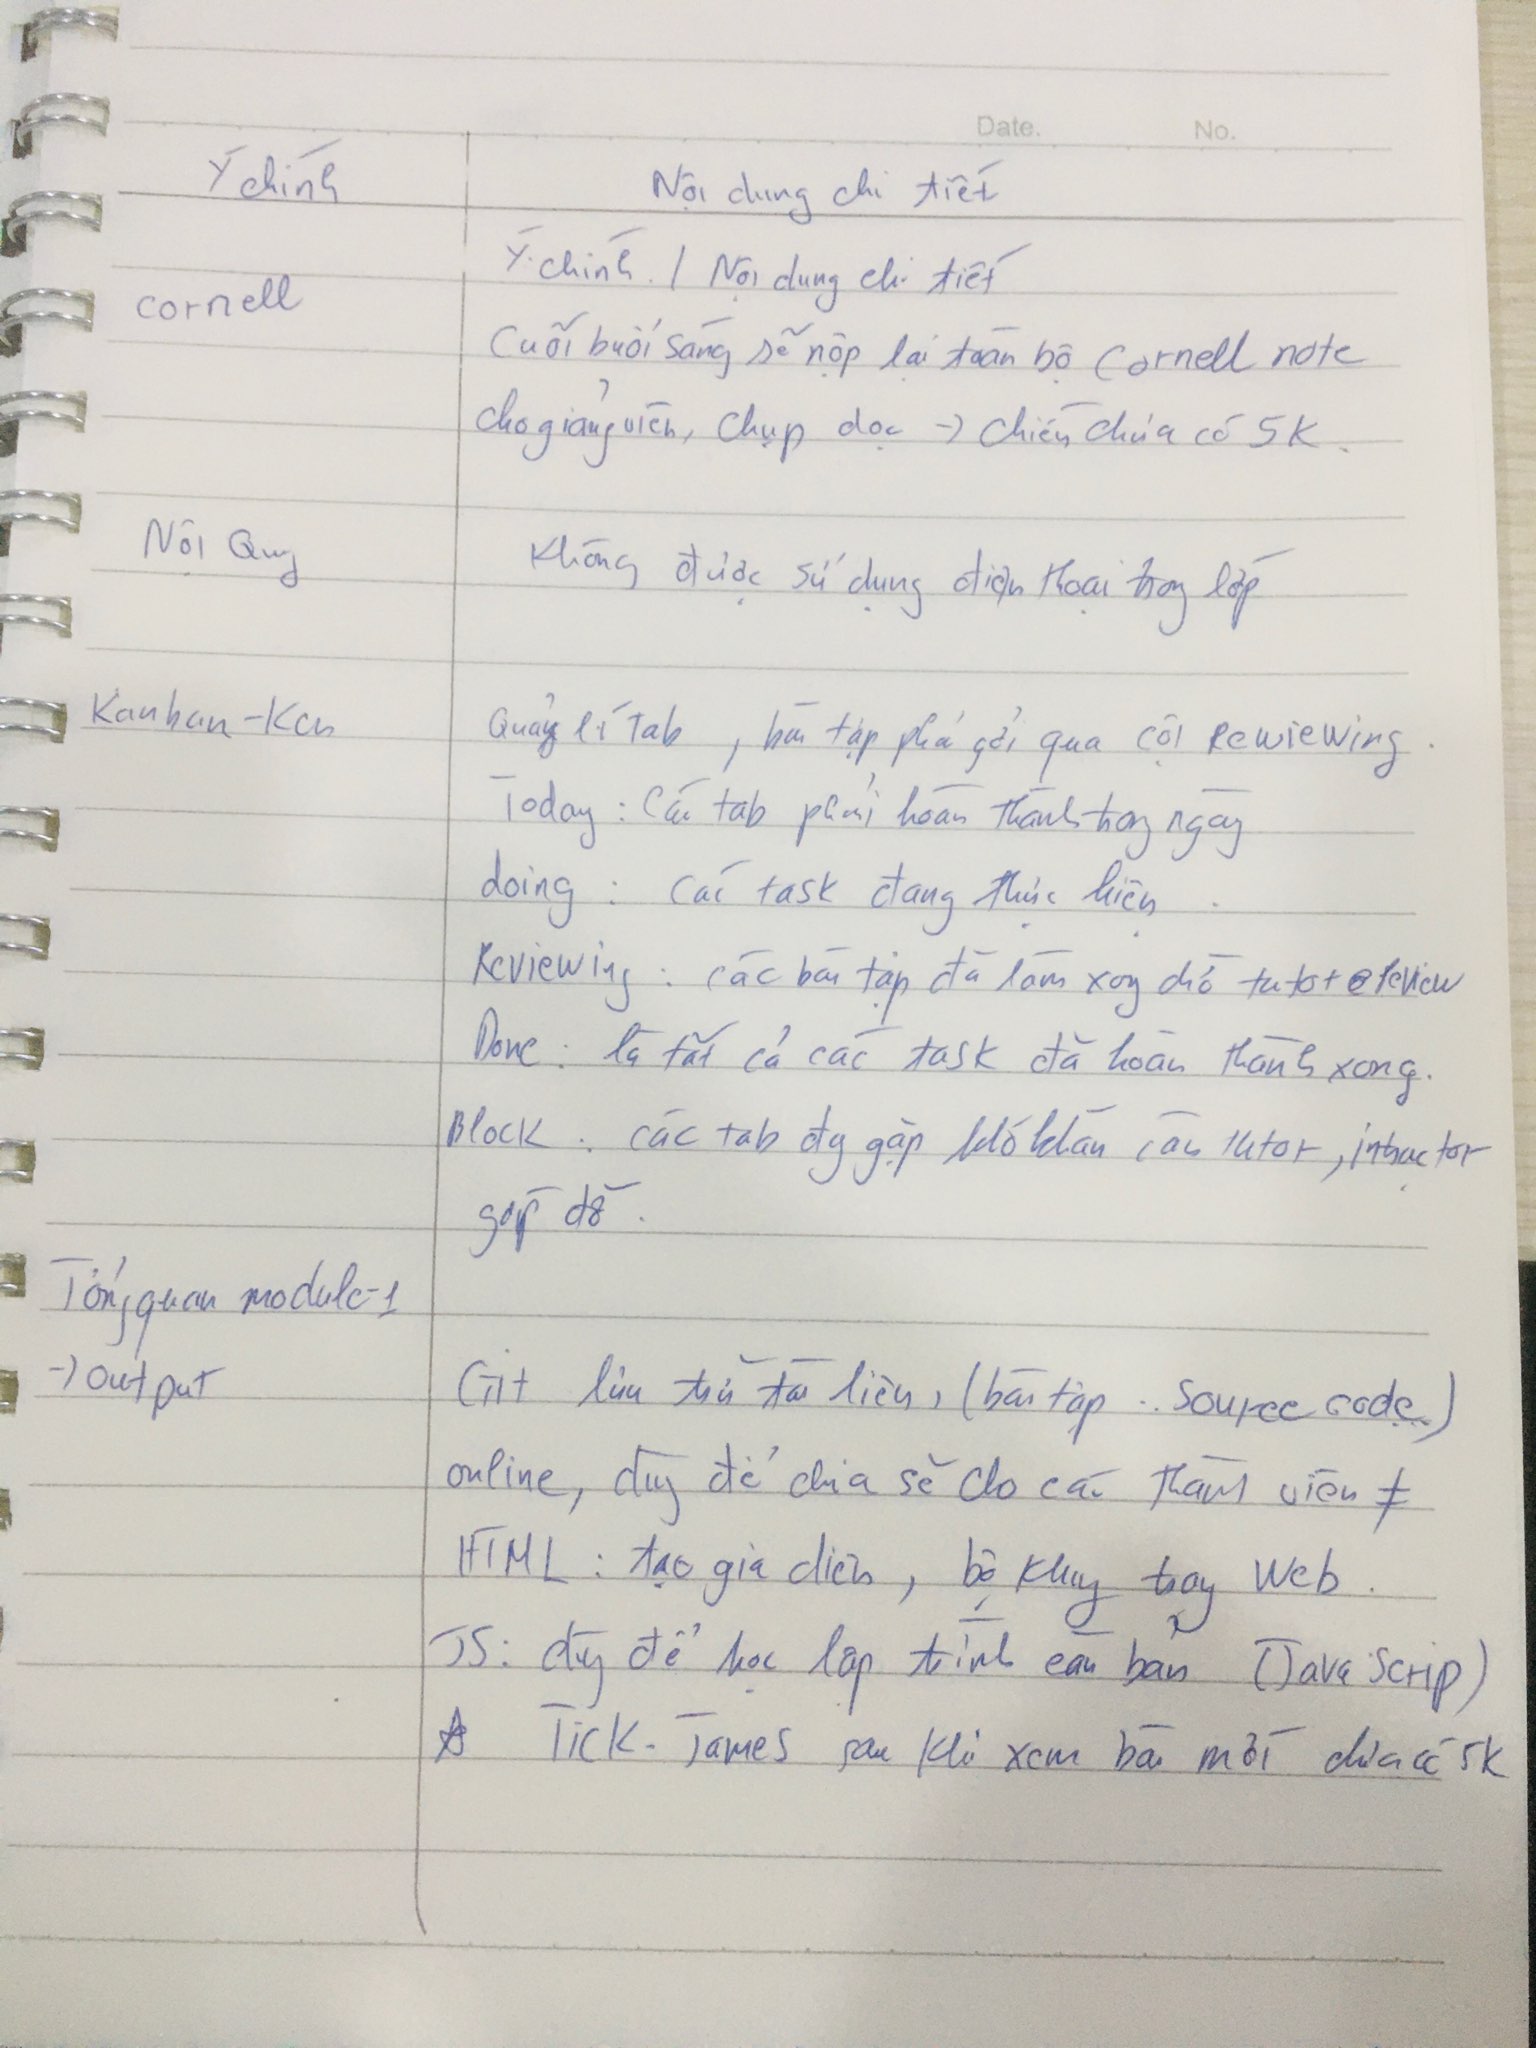 Date. No.
Ý chính Nội dung chi tiết
Ý chính / Nội dung chi tiết
cornell
Cuối buổi sáng sẽ nộp lại toàn bộ Cornell note
cho giảng viên, chụp dọc → chiến chứa có 5K.
Nội Quy Không được sử dụng điện thoại trong lớp
Kanban-Ken Quản lí Tab, bài tập phả gởi qua cột Rewiewing.
Today: Các tab phải hoàn thành trong ngày
doing: các task đang thực hiện.
Reviewing: các bài tập đã làm xong chờ tutor review
Done: là tất cả các task đã hoàn thành xong.
Block: các tab đg gặp khó khăn cần tutor,
đỡ.
Tổng quan module-1
→ output Git lưu trữ tài liệu, (bài tập .. Source code)
online, dùg để chia sẽ cho các thành viên ≠
HTML: tạo gia diện, bộ khug trog Web.
JS: dùg để học lập trình căn bản (Java Scrip)
Tick-James sau khi xem bài mới chứa có 5K